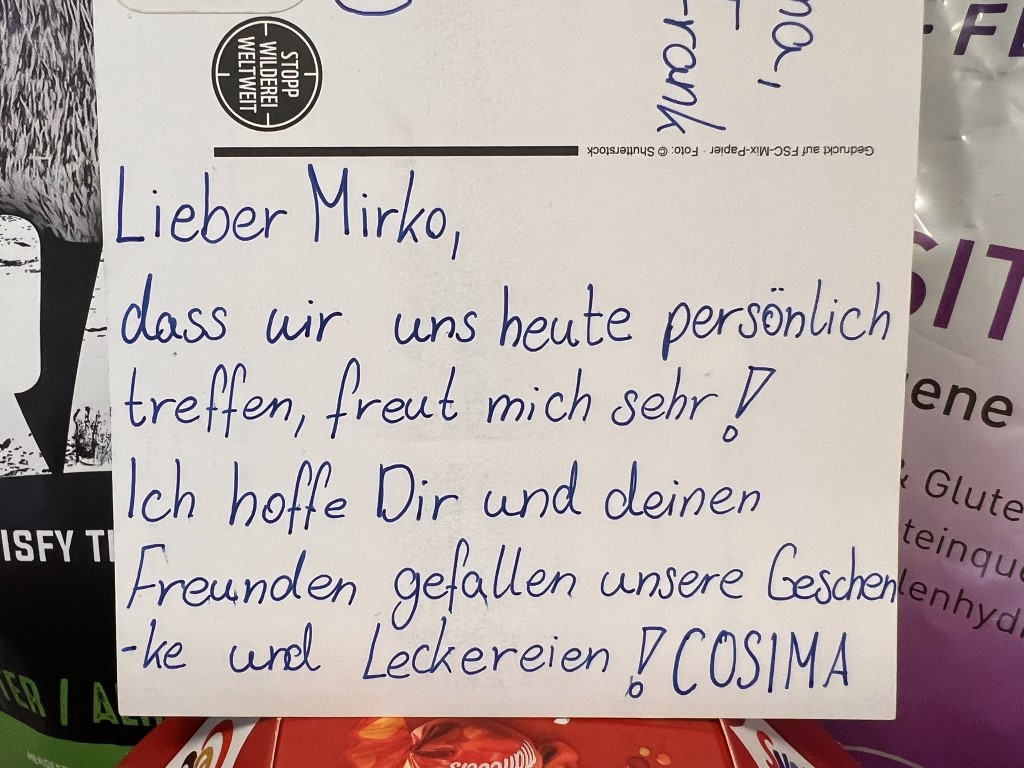 STOPP
WILDEREI
WELTWEIT
Frank
Gedruckt auf FSC-Mix-Papier · Foto: © Shutterstock
Lieber Mirko,
dass wir uns heute persönlich
treffen, freut mich sehr!
Ich hoffe Dir und deinen
Freunden gefallen unsere Geschen
-ke und Leckereien! COSIMA
ISFY
SIT
ene
& Glute
teinqu
lenhyd